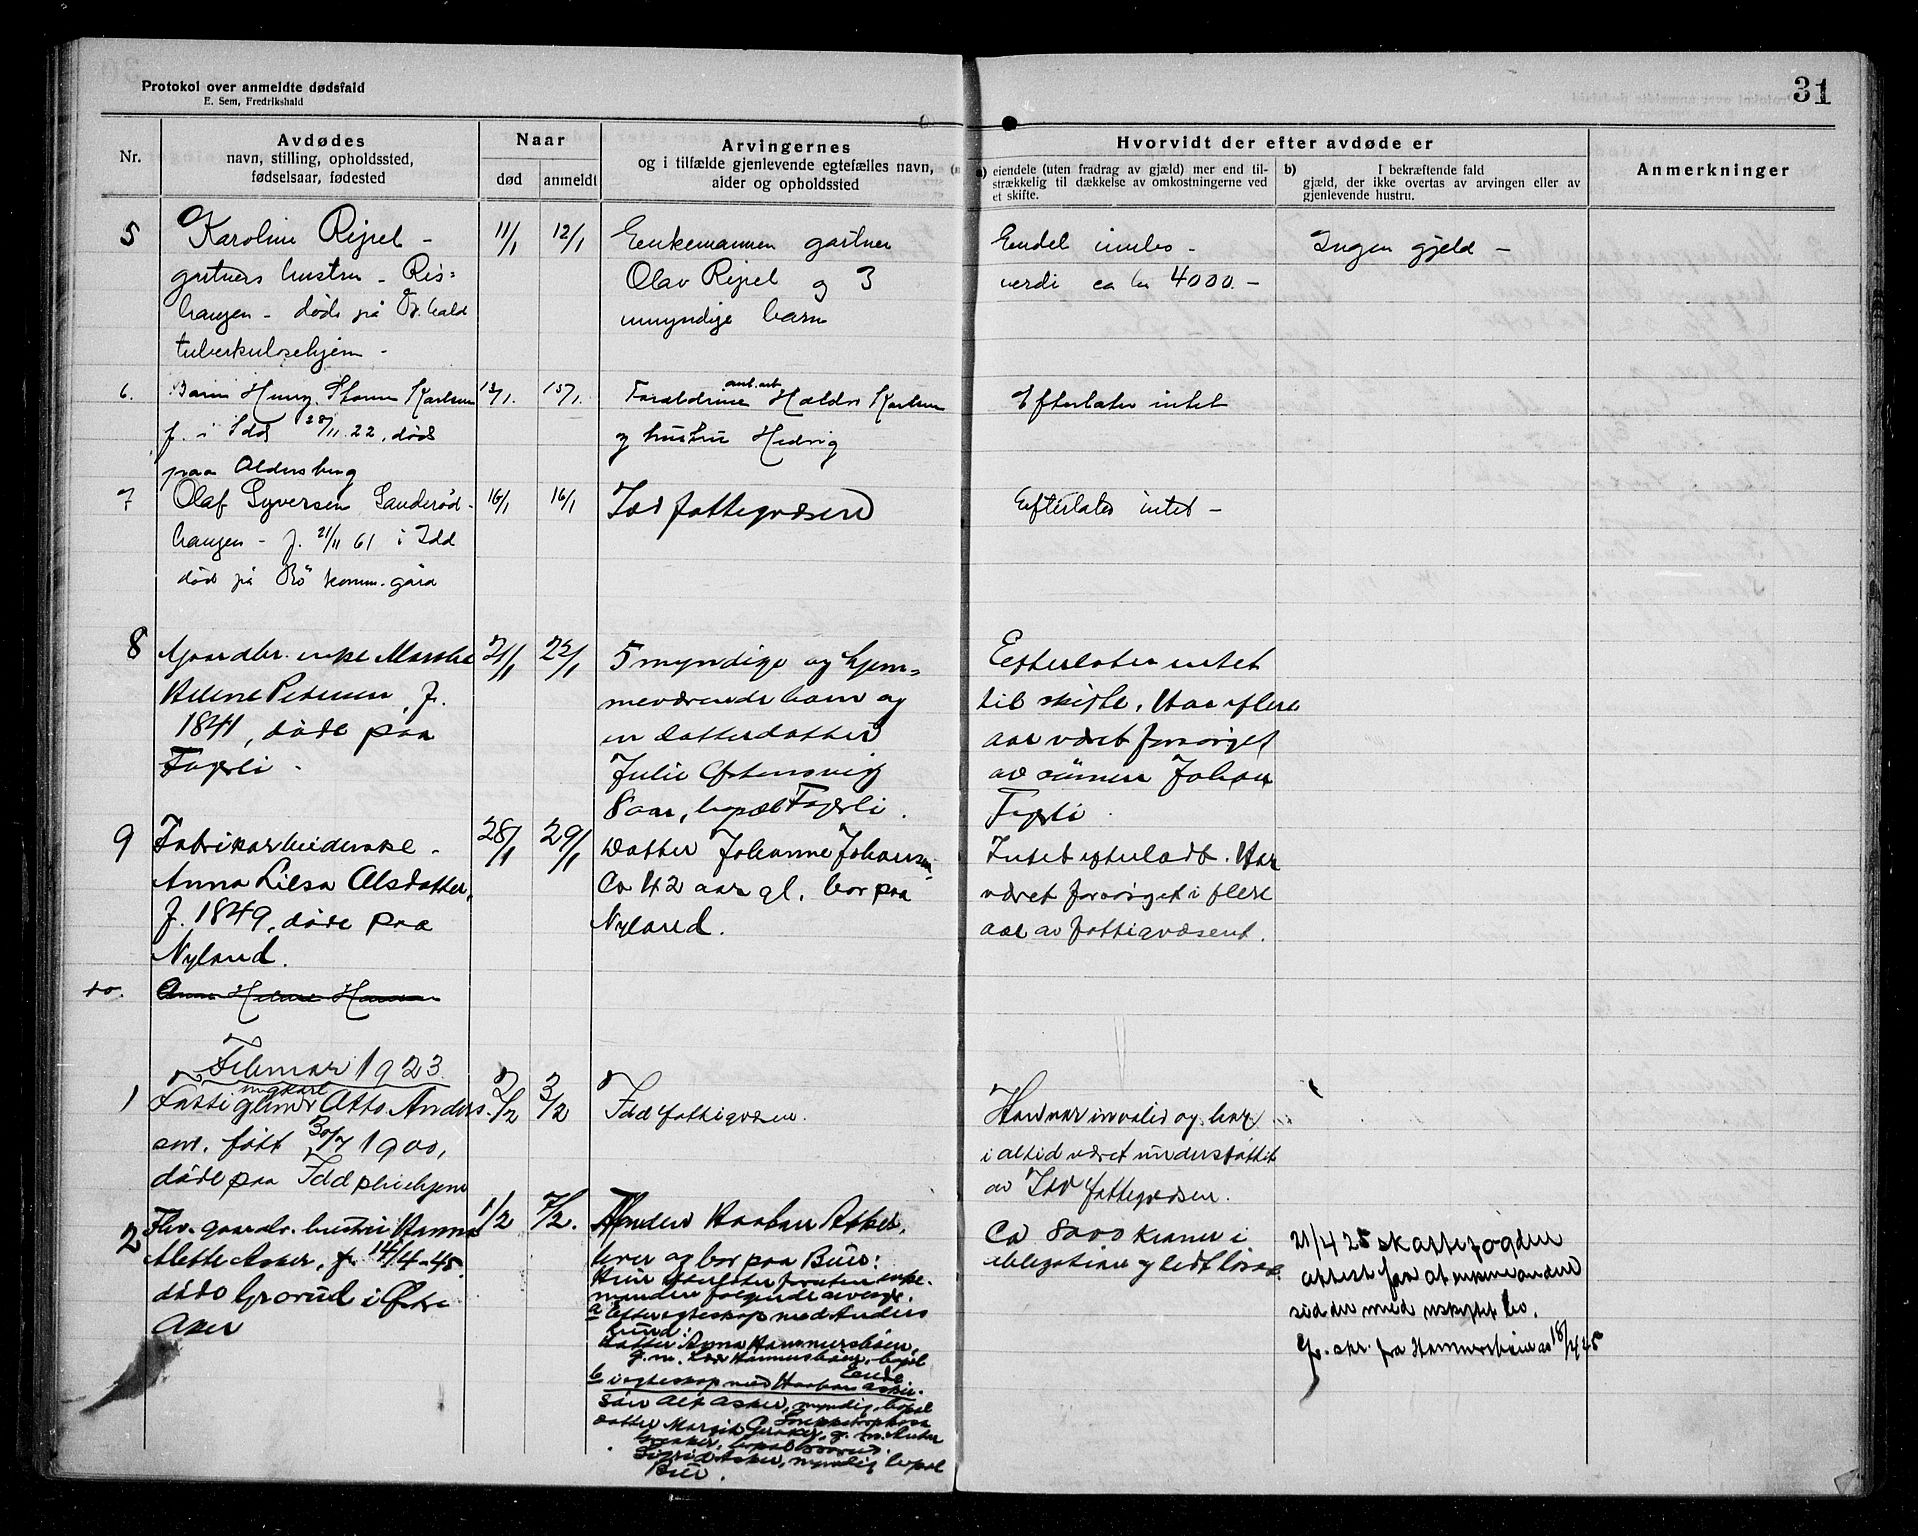 31
Protokol over anmeldte dødsfald
E. Sem, Fredrikshald
Nr.
Avdødes
navn, stilling, opholdssted,
fødselsaar, fødested
Naar
død
anmeldt
Arvingernes
og i tilfælde gjenlevende egtefælles navn,
alder og opholdssted
Hvorvidt der efter avdøde er
a) eiendele (uten fradrag av gjæld) mer end til-
strækkelig til dækkelse av omkostningerne ved
et skifte.
b) I bekræftende fald
gjæld, der ikke overtas av arvingen eller av
gjenlevende hustru.
Anmerkninger
5
Karoline Rijpel -
gartners hustru - Ris=
haugen - døde på Fr.hald
tuberkulosehjem -
11/1
12/1
Enkemannen gartner
Olav Rijpel og 3
umyndige barn
Endel innbo -
verdi ca kr 4000.-
Ingen gjeld -
6.
Barn Henry Karlsen
f. i Idd 28/11.22, død
paa
13/1.
15/1.
Forældrene arb. Karlsen
og hustru Hedvig
Efterlater intet
7
Olaf Syversen Sanderød-
haugen - f. 21/11 61 i Idd
død på Bø komm.gård
16/1
16/1
Idd fattegvæsen
Efterlater intet -
8
Gaardbr. enke Marthe
Helene Petersen, f.
1841, døde paa
Fagerli -
21/1
22/1
5 myndige og hjem-
meværende barn og
en datterdatter
Julie
8 aar, bopæl Fagerli.
Efterlater intet
til skifte. Har i flere
aar været forsørget
av sønnen Johan
Fagerli.
9
Fabrikarbeiderske -
Anna Lilsa Olsdatter,
f. 1849, døde paa
Nyland.
28/1
29/1
Datter Johanne Johansen
Ca 42 aar gl. bor paa
Nyland.
Intet efterladt. Har
været forsørget i flere
aar av fattigvæsenet.
10.
Anna Helene Hansen
Februar 1923
1
Fattiglem ungkarl Otto Anders
sen. født 30/7 1900,
døde paa Idd pleiehjem
2/2
3/2
Idd fattigvæsen.
Han var invalid og har
i altid været understøttet
av Idd fattegvæsen.
2
Fhv. gaardbr. hustru Hanna
Mette Asker, f. 14/4-45.
døde Grorud i Østre
Aker
1/2
7/2.
Manden Haaban Asker,
lever og bor paa Buer:
Hun efterlater foruten enke-
manden følgende arvinger.
a Efter egteskap med Anders
Lund:
datter Anna Hammersbøen,
g.m. Hammersbøen, bopæl
b i egteskap med Haaban Asker.
søn Alf Asker, myndig, bopæl
datter Margit
Sigrid Asker, myndig bopæl
Buer.
Ca 8000 kroner i
obligationer og lidt løsøre
21/4 25 skattefogden
attest for at enkemanden
sidder med uskiftet bo.
Jfr. skr. fra Hammersbøen av 18/4 25